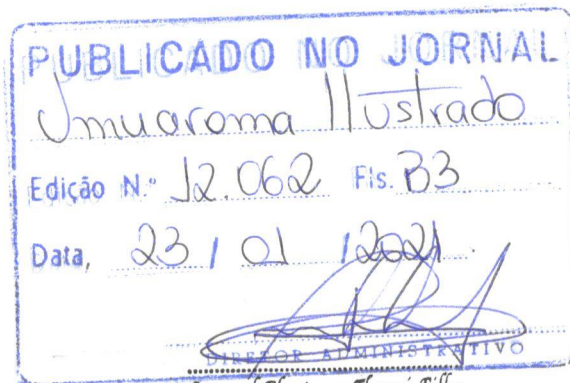 PUBLICADO NO JORNAL
Umuarama Ilustrado
Edição N.º 12.062 Fls. B3
Data, 23 / 01 / 2021
DIRETOR ADMINISTRATIVO